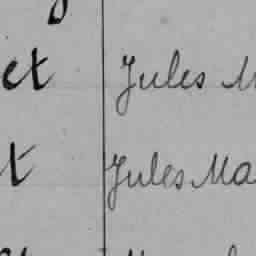 et Jules M
t Jules Ma